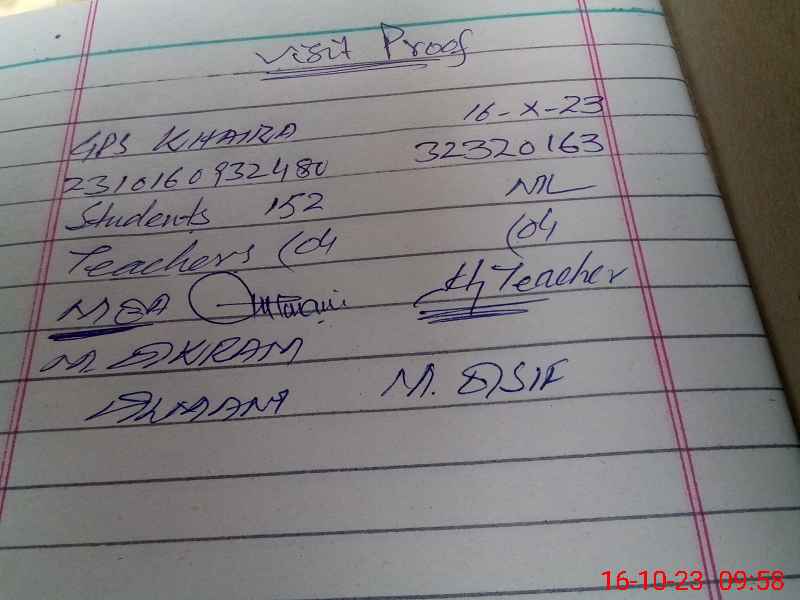 Visit Proof
GPS KHAIRA 16-X-23
2310160932480 32320163
Students 152 NIL
Teachers (04 (04
MEA H/Teacher
M. AKRAM
AWAAN M. ASIF
16-10-23 09:58